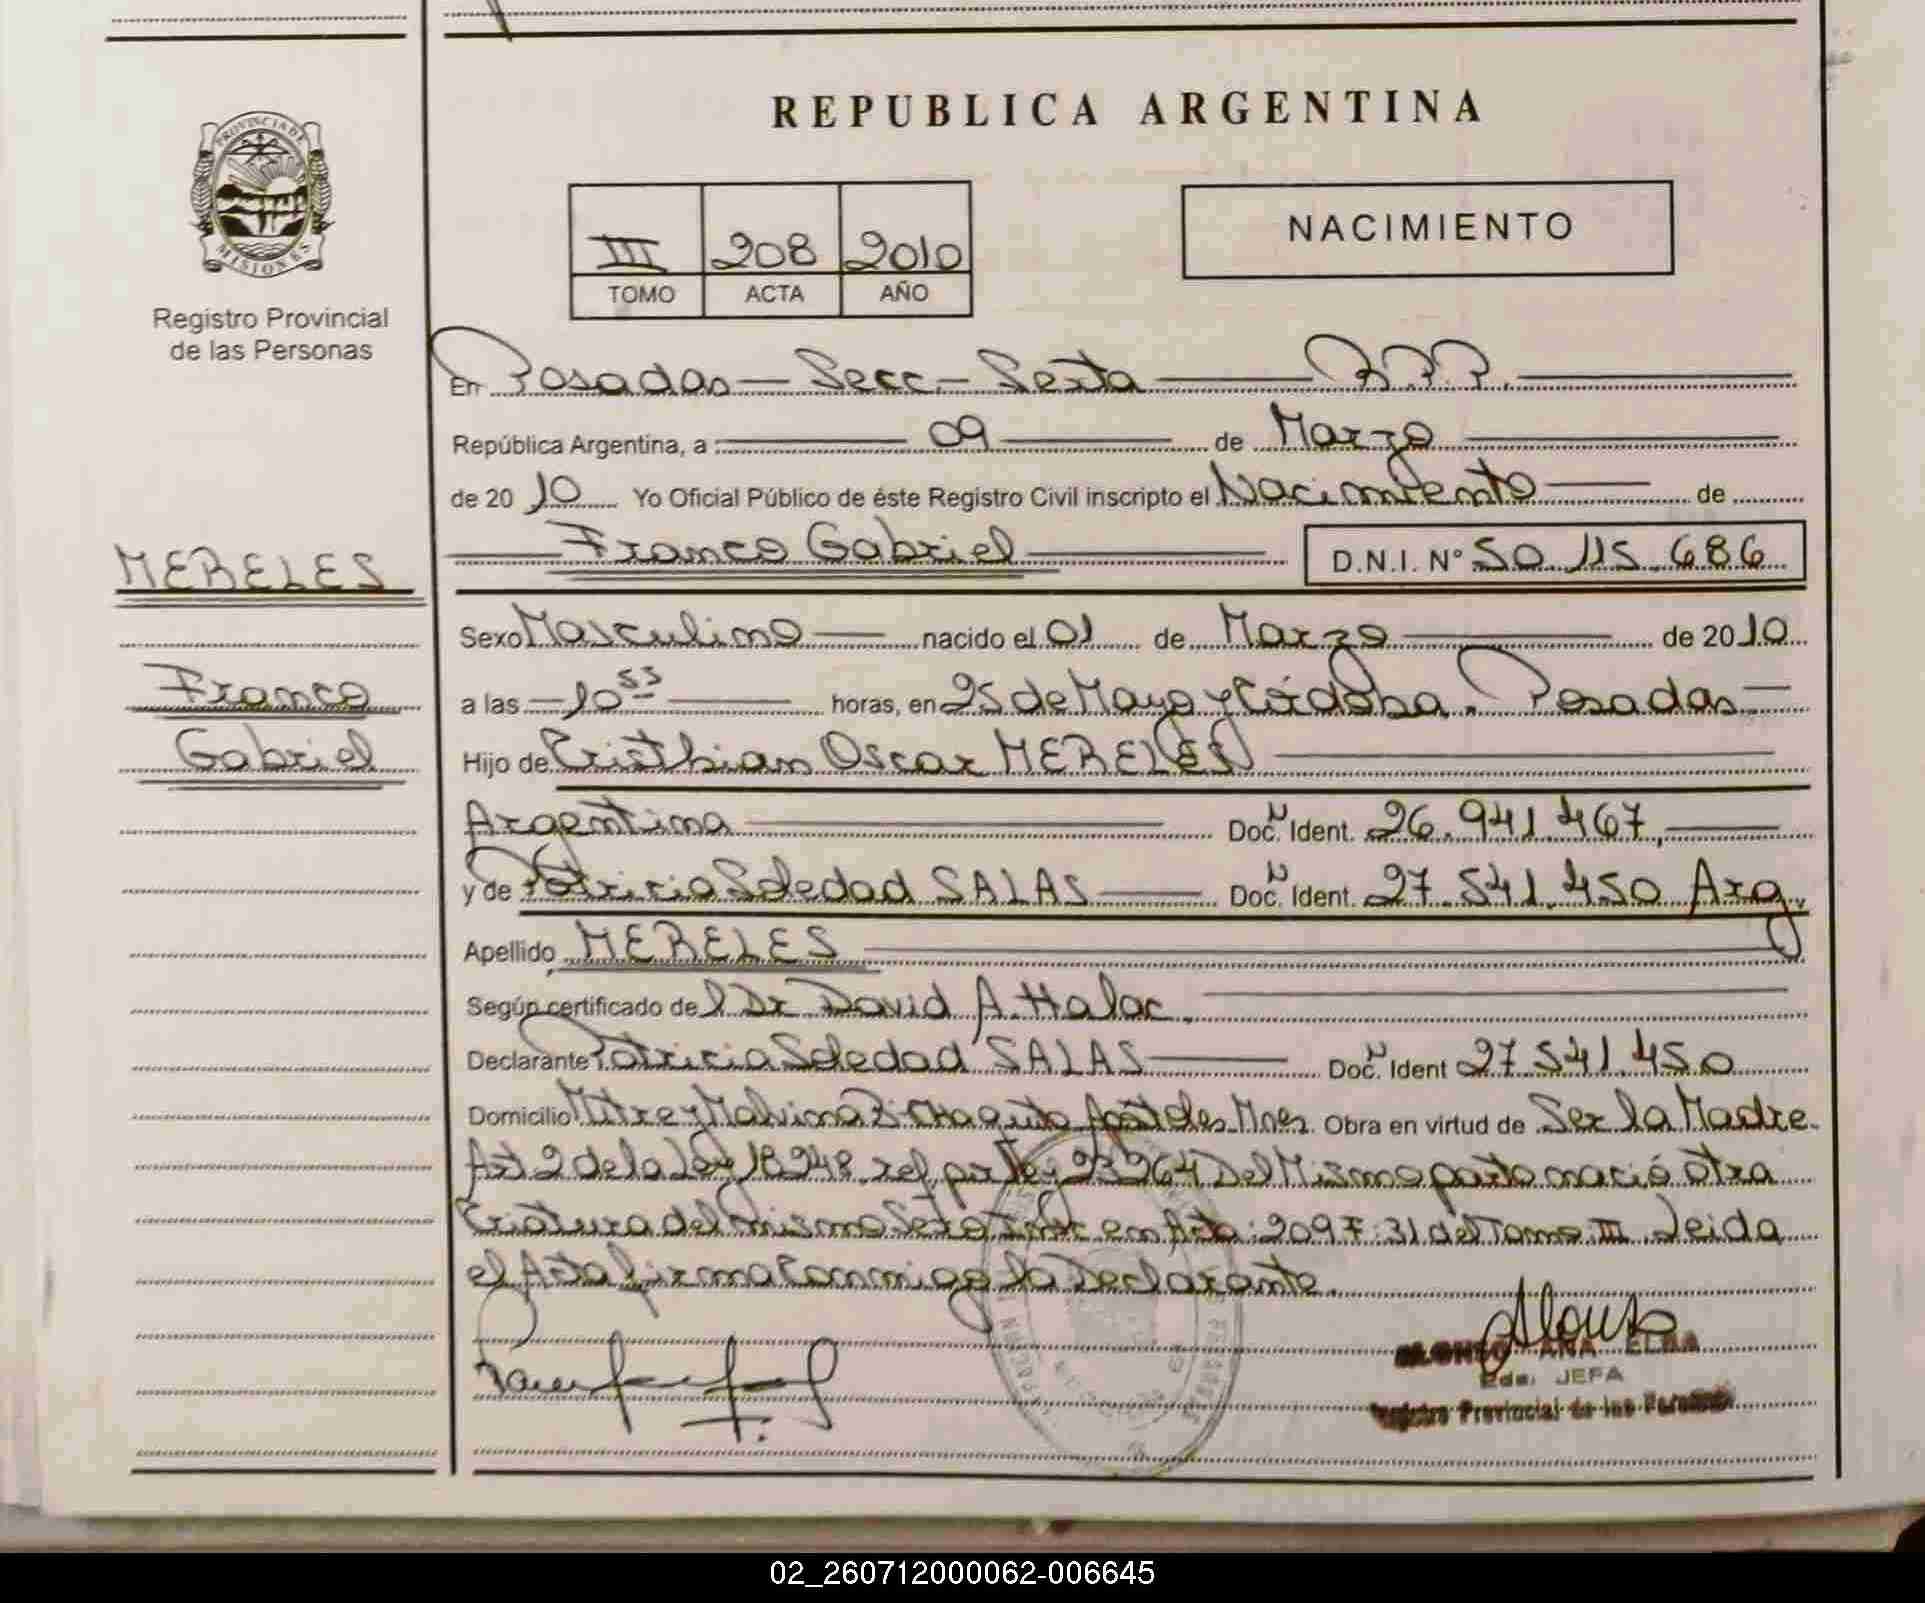 REPUBLICA ARGENTINA
PROVINCIA DE
MISIONES
Registro Provincial
de las Personas
III 208 2010
TOMO ACTA AÑO
NACIMIENTO
En Posadas — Secc. — Sexta — R.P.P.
República Argentina, a 09 de Marzo
de 20 10 Yo Oficial Público de éste Registro Civil inscripto el Nacimiento de
MERELES
Franco Gabriel D.N.I. Nº 50.115.686
Sexo Masculino nacido el 01 de Marzo de 20 10
Franco
a las 10 53 horas, en 25 de Mayo y Córdoba. Posadas
Gabriel
Hijo de Cristhian Oscar MERELES
Argentina Doc. N Ident. 26.941.467
y de Patricia Soledad SALAS Doc. N Ident. 27.541.450 Arg.
Apellido MERELES
Según certificado de l Dr David A. Halac.
Declarante Patricia Soledad SALAS Doc. N Ident 27.541.450
Domicilio Mitre y Malvina Bº Apóstoles Mnes. Obra en virtud de Ser la Madre.
Art 2 de la Ley 18248 ref. por ley 23264 Del Mismo parto nació otra
Criatura del mismo Sexo en Acta: 209 F: 31 del Tomo III. Leida
el Acta firma conmigo la Declarante.
ALONSO ANA ELBA
JEFA
Registro Provincial de las Personas
02_260712000062-006645